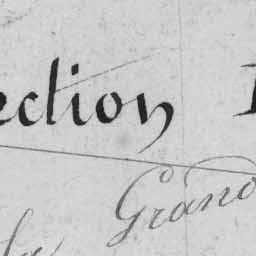 ection
Grand